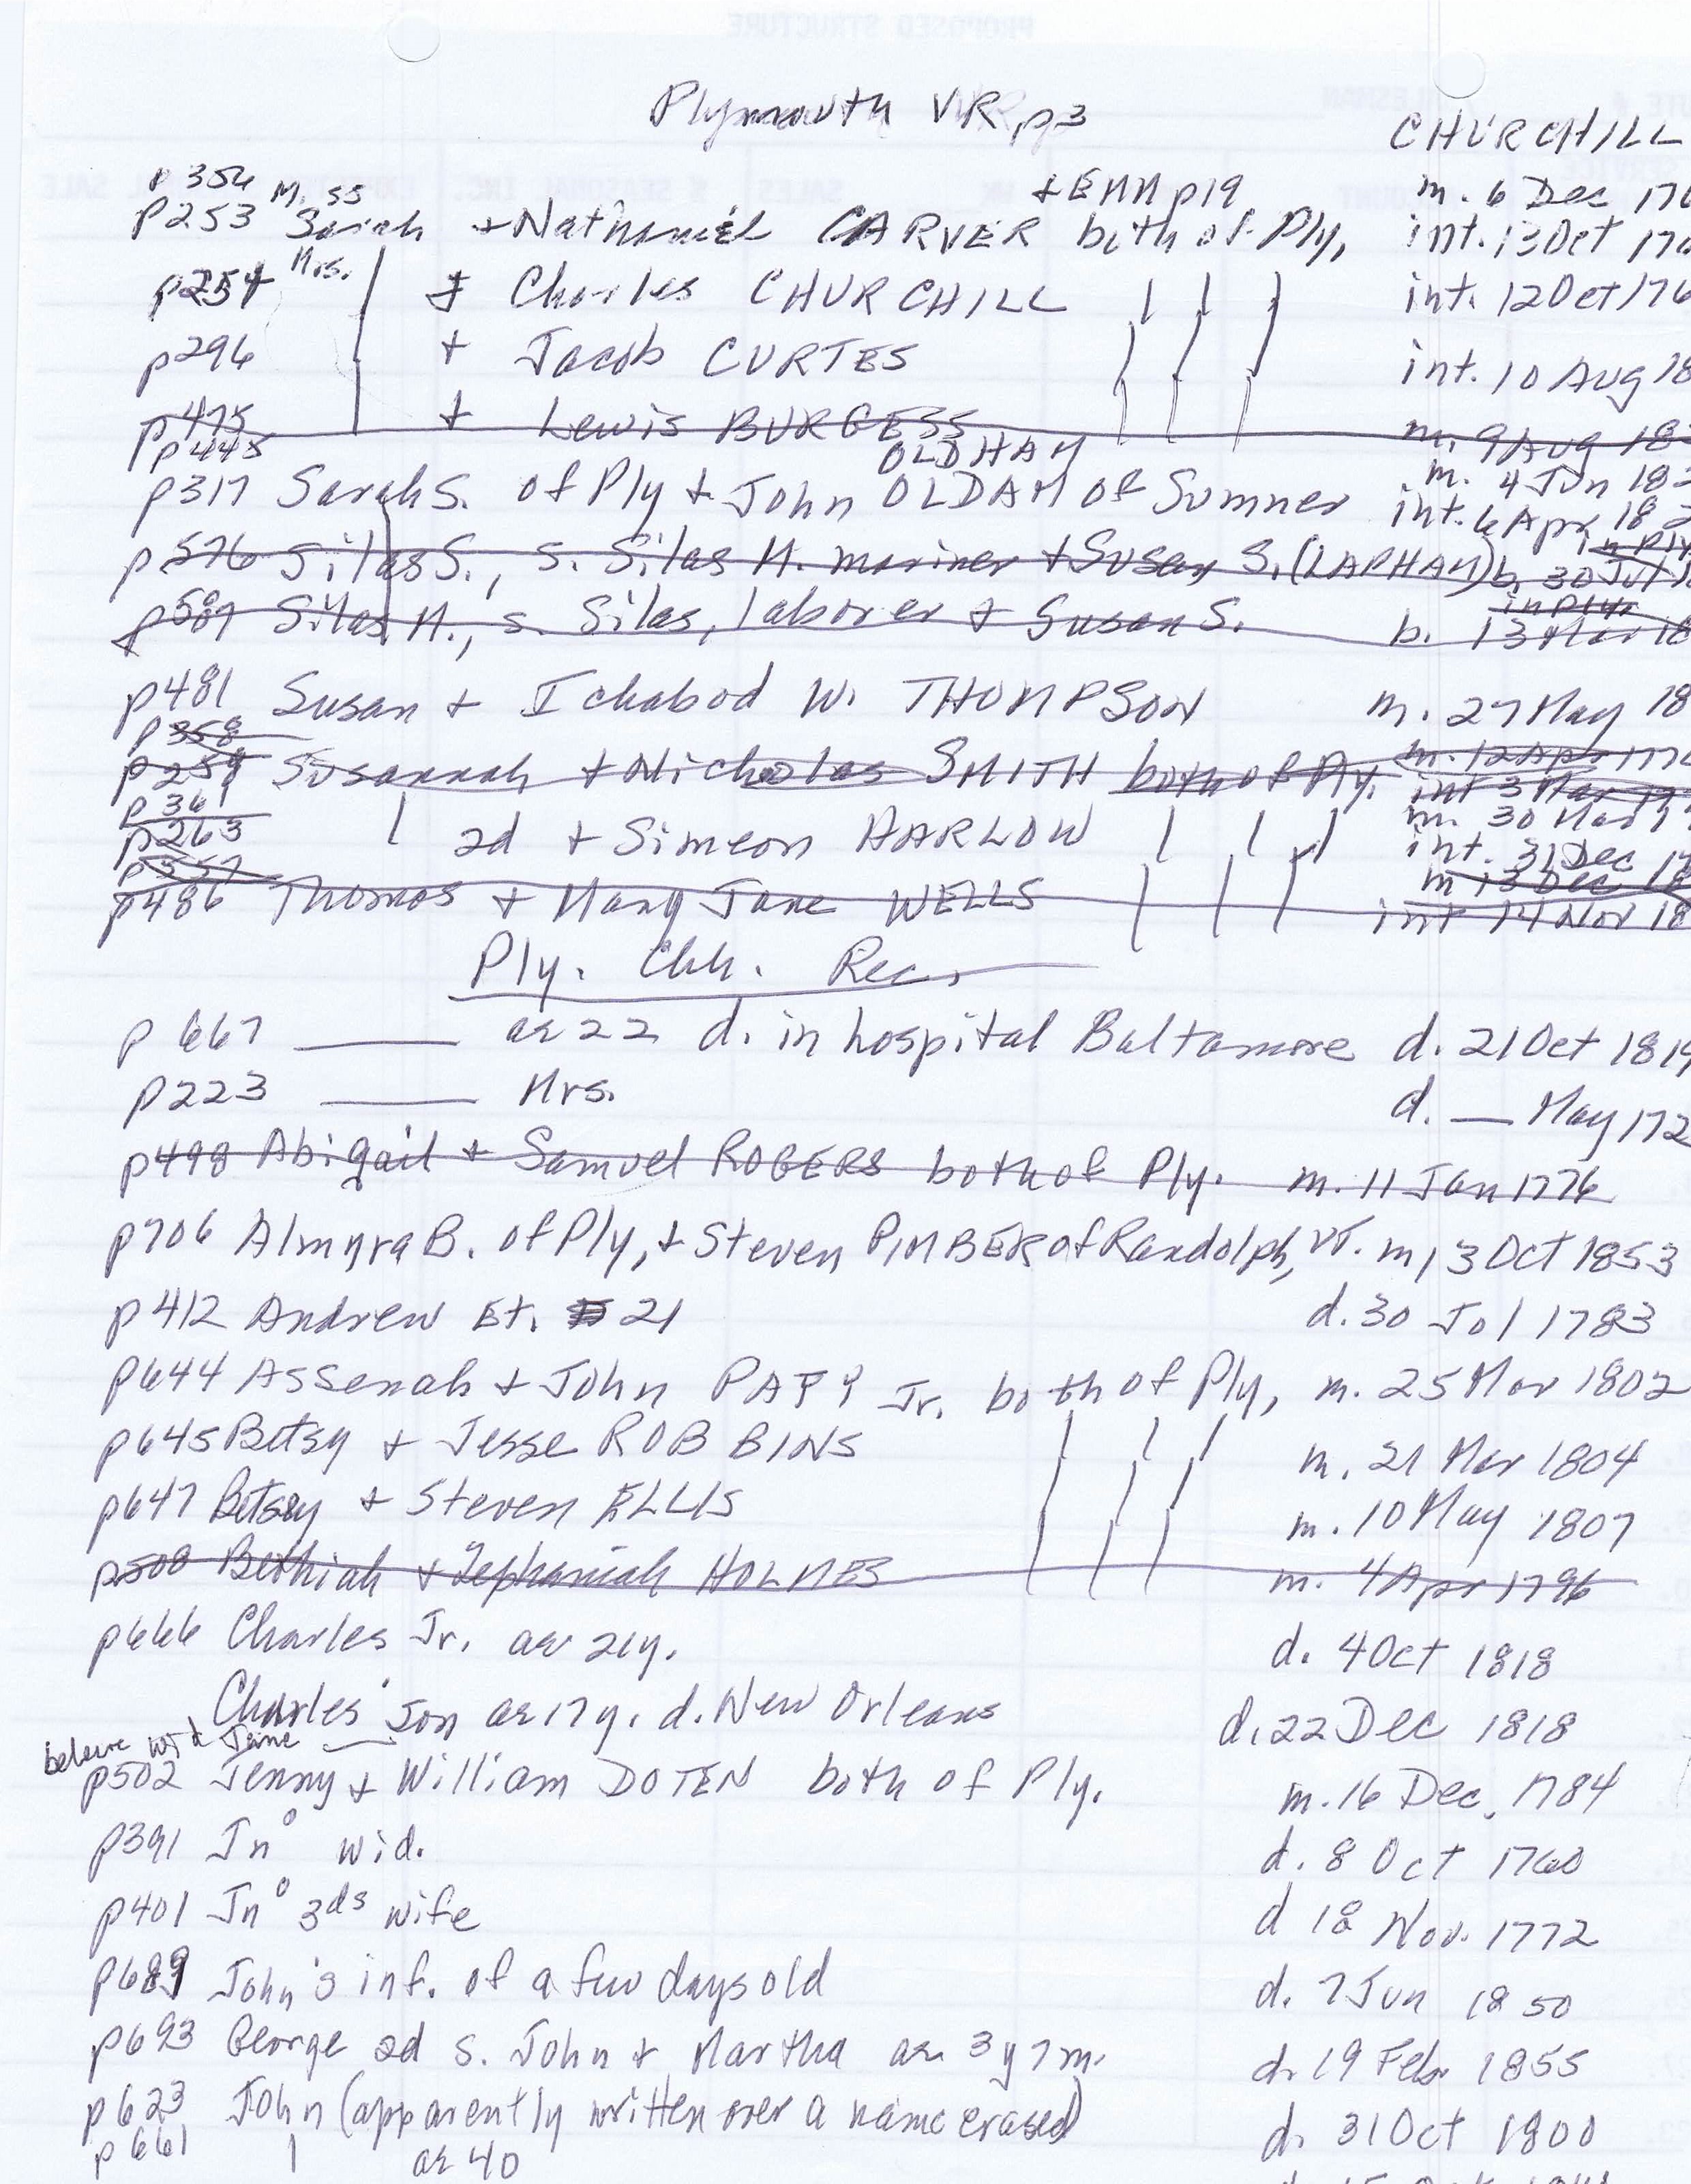 Plymouth VR p3
CHURCHILL
p 354 M. ss + EMM p19 m. 6 Dec 17
p253 Sarah + Nathaniel CARVER both of Ply, int. 13 Oct 17
p254 Mrs. | + Charles CHURCHILL | | | int. 12 Oct 176
p296 | + Jacob CURTES | | | int. 10 Aug 18
p475 | + Lewis BURGESS | | | m. 9 Aug 18
p445 OLDHAM m. 4 Jun 18
p317 Sarah S. of Ply + John OLDAM of Sumner int. 6 Apr 18
p576 Silas S., s. Silas H. mariner + Susan S. (LAPHAM) b. 30 Jul
in Ply.
p587 Silas H., s. Silas, laborer + Susan S. b. 13 Mar 18
p481 Susan + Ichabod W. THOMPSON m. 27 May 18
p358 m. 12 Apr 177
p259 Susannah + Nicholas SMITH both of Ply. int 3 Mar 17
p 361 m. 30 Mar 17
p263 | 2d + Simeon HARLOW | | | int. 31 Dec 17
p557 m 13 Dec 18
p486 Thomas + Mary Jane WELLS | | | int 14 Nov 18
Ply. Chh. Rec.
p 667 ____ ae 22 d. in hospital Baltamore d. 21 Oct 1819
p223 ____ Mrs. d. __ May 172
p498 Abigail + Samuel ROGERS both of Ply. m. 11 Jan 1776
p706 Almyra B. of Ply, + Steven PIMBER of Randolph, VT. m, 3 Oct 1853
p412 Andrew Et. 21 d. 30 Jul 1783
p644 Assenah + John PATY Jr. both of Ply, m. 25 Mar 1802
p645 Betsy + Jesse ROBBINS | | | m. 21 Mar 1804
p647 Betsey + Steven ELLIS | | | m. 10 May 1807
p508 Bethiah + Zephaniah HOLMES | | | m. 4 Apr 1796
p666 Charles Jr. ae 21y. d. 4 Oct 1818
Charles' son ae 17 y. d. New Orleans d. 22 Dec 1818
beleive wid Jane
p502 Jenny + William DOTEN both of Ply. m. 16 Dec. 1784
p391 Jn° wid. d. 8 Oct 1760
p401 Jn° 3ds wife d 18 Nov. 1772
p689 John's inf. of a few days old d. 7 Jun 1850
p693 George 2d s. John + Martha ae 3 y 7 m. d. 19 Feb 1855
p623 John (apparently written over a name erased) d. 31 Oct 1800
p661 | ae 40